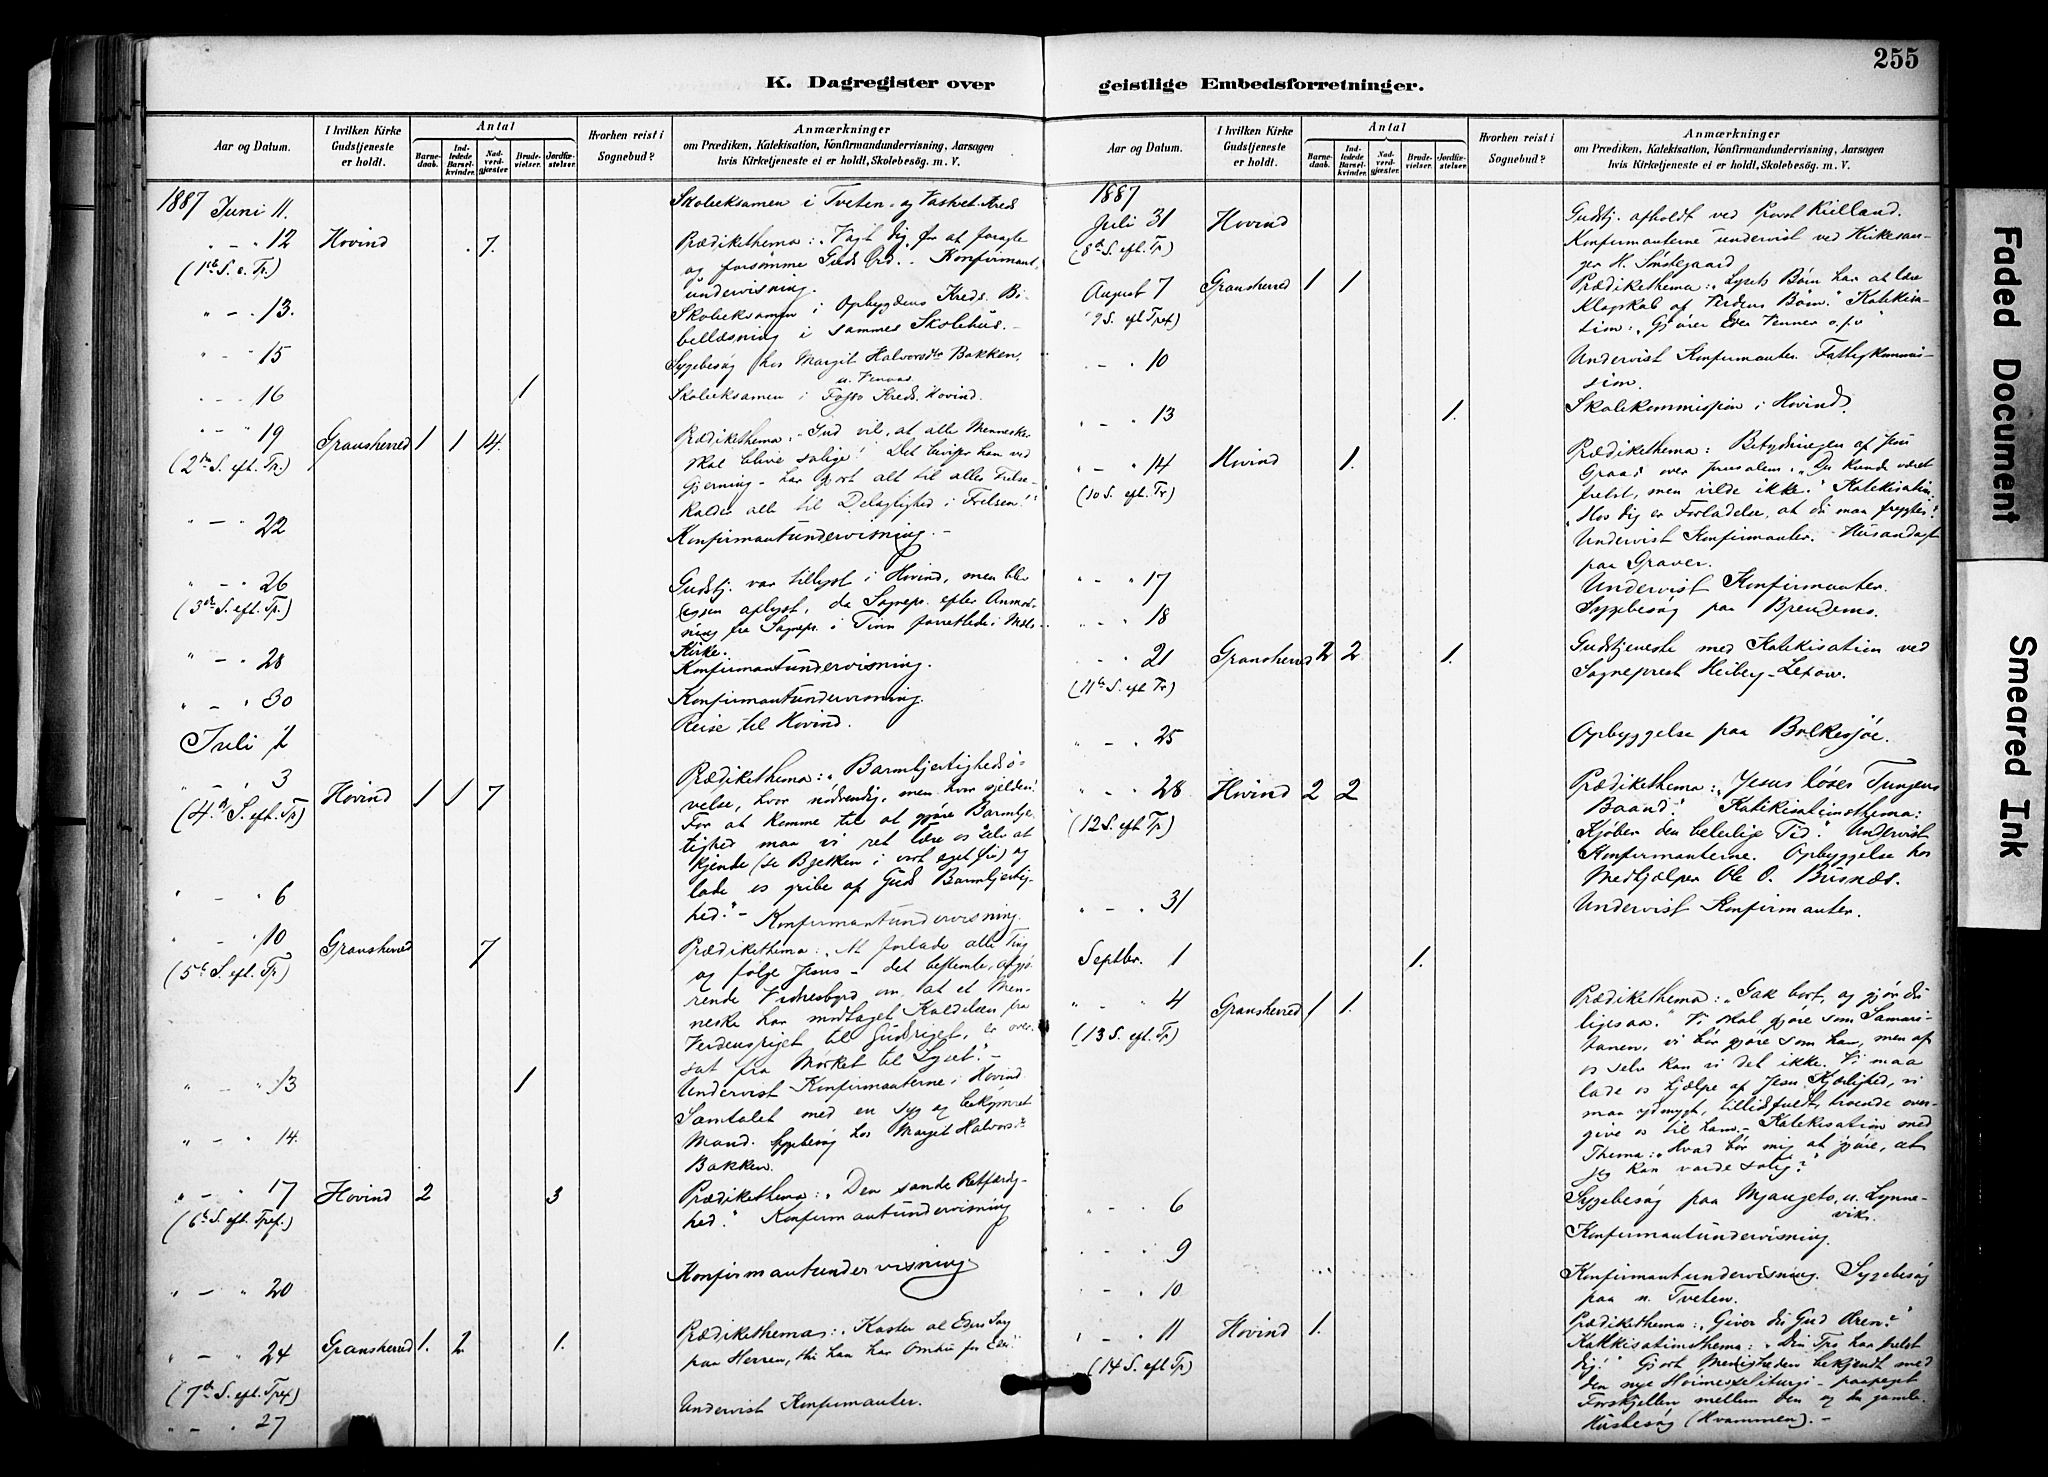 255
K. Dagregister over
geistlige Embedsforretninger.
Aar og Datum.
I hvilken Kirke Gudstjeneste er holdt.
Antal
Barnedaab.
Indledede Barselkvinder.
Nadverdgjæster
Brudevielser.
Jordfæstelser.
Hvorhen reist i Sognebud?
Anmærkninger
om Prædiken, Katekisation, Konfirmandundervisning, Aarsagen
hvis Kirketjeneste ei er holdt, Skolebesøg. m. V.
1887 Juni 11. Skoleeksamen i Tveten og Kreds
" - " 12 Hovind 7. Prædikethema: "Vogt dig for at foragte
(1ste S. e. Tr.) og forsømme Guds Ord. - Konfirmant
undervisning.
" - " 13. Skoleeksamen i Opbygdens Kreds. Bi-
bellæsning i sammes Skolehus. -
" - " 15 Sygebesøg hos Margit Halvorsdtr Bakken,
" - " 16 1 Skoleeksamen i Kreds. Hovind.
" - " 19 Gransherred 1 1 14. Prædikethema: "Gud vil, at alle Mennesker
(2den S. eft. Tr.) skal blive salige! Det beviser han ved
Gjerning - har gjort alt til alles Frelse -
kalder alle til Delagtighed i Frelsen!"
" - " 22 Konfirmantundervisning. -
" - " 26 Gudstj. var tillyst i Hovind, men blev
(3die S. eft. Tr.) aflyst, da Sognepr. efter Anmod-
ning fra Sognepr. i Tinn forrettede i Mæls
Kirke.
" - " 28 Konfirmantundervisning.
" - " 30 Konfirmantundervisning.
Juli 2 Reise til Hovind.
" - " 3 Hovind 1 1 7 Prædikethema: "Barmhjertighedsø-
(4de S. eft. Tr) velse, hvor nødvendig, men hvor sjelden!
For at komme til at gjøre Barmhje
tighed maa vi ret lære os selv at
kjende (se Bjelken i vort eget Øie) og
lade os gribe af Guds Barmhjertig-
hed." -
" - " 6 Konfirmantundervisning.
" - " 10 Gransherred 7 Prædikethema: "At forlade alle Ting
(5te S. eft. Tr) og følge Jesus - det bestemte, afgjø-
rende Vidnesbyrd om, at et Men-
neske har modtaget Kaldelsen fra
Verdensriget til Gudsriget, er over-
sat fra Mørket til Lyset." -
" - " 13 1 Undervist Konfirmanterne i Hovind
Samtalet med en syg og bekymret
" - " 14. Mand. Sygebesøg hos Margit Halvorsdtr
Bakken.
" - " 17 Hovind 2 3 Prædikethema: "Den sande Retfærdig-
(6te S. eft. Tref.) hed." Konfirmantundervisning
" - " 20 Konfirmantundervisning
" - " 24 Gransherred 1. 2 1. Prædikethema: "Kaster al Eders Sorg
(7de S. eft. Tref) paa Herren, thi han har Omhu for Eder."
" - " 27 Undervist Konfirmanter.
Aar og Datum.
I hvilken Kirke Gudstjeneste er holdt.
Antal
Barnedaab.
Indledede Barselkvinder.
Nadverdgjæster.
Brudevielser.
Jordfæstelser.
Hvorhen reist i Sognebud?
Anmærkninger
om Prædiken, Katekisation, Konfirmandundervisning, Aarsagen
hvis Kirketjeneste ei er holdt, Skolebesøg. m. V.
1887
Juli 31 Hovind Gudstj. afholdt ved Provst Kielland.
(8de S. eft. Tr.) Konfirmanterne undervist ved Kirkesan-
ger H.
August 7 Gransherred 1 1 Prædikethema: "Lysets Børn har at lære
(9 S. eft Tref) Klogskab af Verdens Børn." Katekisa-
tion: "Gjører Eder Venner o.s.v"
" - " 10 Undervist Konfirmanter. Fattigkommis-
sion.
" - " 13 1. Skolekommission i Hovind.
" - " 14 Hovind 1. Prædikethema: Betydningen af Jesu
(10 S. eft. Tr) Graad over Jerusalem. "Du kunde været
frelst, men vilde ikke." Katekisation:
"Hos dig er Forladelse, at du maa frygtes."
Undervist Konfirmanter. Husandagt
paa Graver.
" - " 17 Undervist Konfirmanter.
" - " 18 Sygebesøg paa
" - " 21 Gransherred 2 2 1. Gudstjeneste med Katekisation ved
(11te S. eft Tr) Sogneprest Heiberg-Lexow.
" - " 25 Opbyggelse paa Bolkesjøe.
" - " 28 Hovind 2 2 Prædikethema: "Jesus løser Tungens
(12 S. eft Tr) Baand." Katekisationsthema:
"Kjøber den beleilige Tid." Undervist
Konfirmanterne. Opbyggelse hos
Medhjælper Ole O. Busnæs.
" - " 31 Undervist Konfirmanter.
Septbr. 1 1.
" - " 4 Gransherred 1 1. Prædikethema: "Gak bort, og gjør du
(13 S. eft. Tr) ligesaa." Vi skal gjøre som Samari-
tanen, vi bør gjøre som han, men af
os selv kan vi det ikke. Vi maa
lade os hjælpe af Jesu Kjærlighed, vi
maa ydmygt, tillidsfuldt, troende over-
give os til ham. - Katekisation med
Thema: "Hvad bør mig at gjøre, at
jeg kan vorde salig?"
" - " 6 Sygebesøg paa
" - " 9 Konfirmantundervisning.
" - " 10 Konfirmantundervisning. Sygebesøg
paa n. Tveten.
" - " 11 Hovind 1. Prædikethema: "Giver du Gud Æren?"
(14 S. eft Tr) Katekisationsthema: "Din Tro har frelst
dig!" Gjort Menigheden bekjendt med
den nye Høimesseliturgi - paapeget
Forskjellen mellem den og den gamle.
Husbesøg (Hvammen). -
Faded Document
Smeared Ink